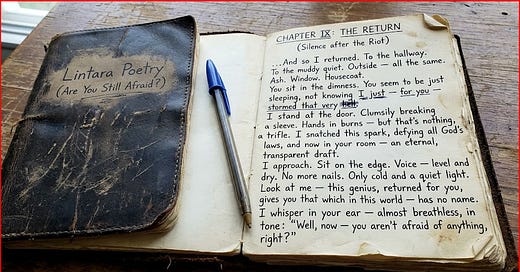 Lintara Poetry
(Are You Still Afraid?)
CHAPTER IX: THE RETURN
(Silence after the Riot)
...And so I returned. To the hallway.
To the muddy quiet. Outside — all the same.
Ash. Window. Housecoat.
You sit in the dimness. You seem to be just
sleeping, not knowing I just — for you —
stormed that very hell.
I stand at the door. Clumsily breaking
a sleeve. Hands in burns — but that's nothing,
a trifle. I snatched this spark, defying all God's
laws, and now in your room — an eternal,
transparent draft.
I approach. Sit on the edge. Voice — level and
dry. No more nails. Only cold and a quiet light.
Look at me — this genius, returned for you,
gives you that which in this world — has no name.
I whisper in your ear — almost breathless, in
tone: "Well, now — you aren't afraid of anything,
right?"